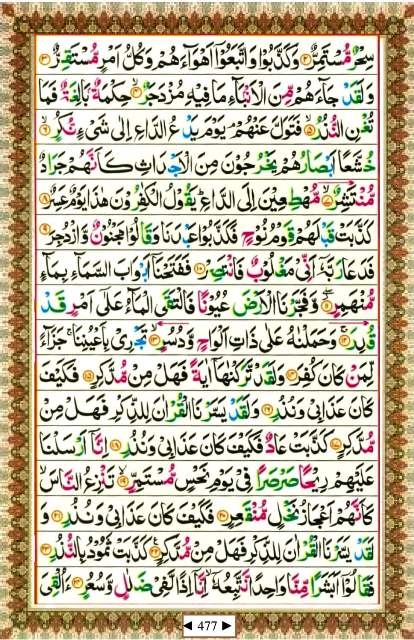 سِحْرٌ مُّسْتَمِرٌّ ۝۲ وَكَذَّبُوْا وَاتَّبَعُوْۤا اَهْوَآءَهُمْ وَكُلُّ اَمْرٍ مُّسْتَقِرٌّ ۝۳
وَلَقَدْ جَآءَهُمْ مِّنَ الْاَنْۢبَآءِ مَا فِيْهِ مُزْدَجَرٌ ۝۴ حِكْمَةٌۢ بَالِغَةٌ فَمَا
تُغْنِ النُّذُرُ ۝۵ فَتَوَلَّ عَنْهُمْ ۘ يَوْمَ يَدْعُ الدَّاعِ اِلٰى شَىْءٍ نُّكُرٍ ۝۶
خُشَّعًا اَبْصَارُهُمْ يَخْرُجُوْنَ مِنَ الْاَجْدَاثِ كَاَنَّهُمْ جَرَادٌ
مُّنْتَشِرٌ ۝۷ مُّهْطِعِيْنَ اِلَى الدَّاعِ ؕ يَقُوْلُ الْكٰفِرُوْنَ هٰذَا يَوْمٌ عَسِرٌ ۝۸
كَذَّبَتْ قَبْلَهُمْ قَوْمُ نُوْحٍ فَكَذَّبُوْا عَبْدَنَا وَقَالُوْا مَجْنُوْنٌ وَّازْدُجِرَ ۝۹
فَدَعَا رَبَّهٗۤ اَنِّىْ مَغْلُوْبٌ فَانْتَصِرْ ۝۱۰ فَفَتَحْنَاۤ اَبْوَابَ السَّمَآءِ بِمَآءٍ
مُّنْهَمِرٍ ۝۱۱ وَّفَجَّرْنَا الْاَرْضَ عُيُوْنًا فَالْتَقَى الْمَآءُ عَلٰۤى اَمْرٍ قَدْ
قُدِرَ ۝۱۲ وَحَمَلْنٰهُ عَلٰى ذَاتِ اَلْوَاحٍ وَّدُسُرٍ ۝۱۳ تَجْرِىْ بِاَعْيُنِنَا ۚ جَزَآءً
لِّمَنْ كَانَ كُفِرَ ۝۱۴ وَلَقَدْ تَّرَكْنٰهَاۤ اٰيَةً فَهَلْ مِنْ مُّدَّكِرٍ ۝۱۵ فَكَيْفَ
كَانَ عَذَابِىْ وَنُذُرِ ۝۱۶ وَلَقَدْ يَسَّرْنَا الْقُرْاٰنَ لِلذِّكْرِ فَهَلْ مِنْ
مُّدَّكِرٍ ۝۱۷ كَذَّبَتْ عَادٌ فَكَيْفَ كَانَ عَذَابِىْ وَنُذُرِ ۝۱۸ اِنَّاۤ اَرْسَلْنَا
عَلَيْهِمْ رِيْحًا صَرْصَرًا فِىْ يَوْمِ نَحْسٍ مُّسْتَمِرٍّ ۝۱۹ تَنْزِعُ النَّاسَ ۙ
كَاَنَّهُمْ اَعْجَازُ نَخْلٍ مُّنْقَعِرٍ ۝۲۰ فَكَيْفَ كَانَ عَذَابِىْ وَنُذُرِ ۝۲۱ وَ
لَقَدْ يَسَّرْنَا الْقُرْاٰنَ لِلذِّكْرِ فَهَلْ مِنْ مُّدَّكِرٍ ۝۲۲ كَذَّبَتْ ثَمُوْدُ بِالنُّذُرِ ۝۲۳
فَقَالُوْۤا اَبَشَرًا مِّنَّا وَاحِدًا نَّتَّبِعُهٗۤ ۙ اِنَّاۤ اِذًا لَّفِىْ ضَلٰلٍ وَّسُعُرٍ ۝۲۴ ءَاُلْقِىَ
◄ 477 ►